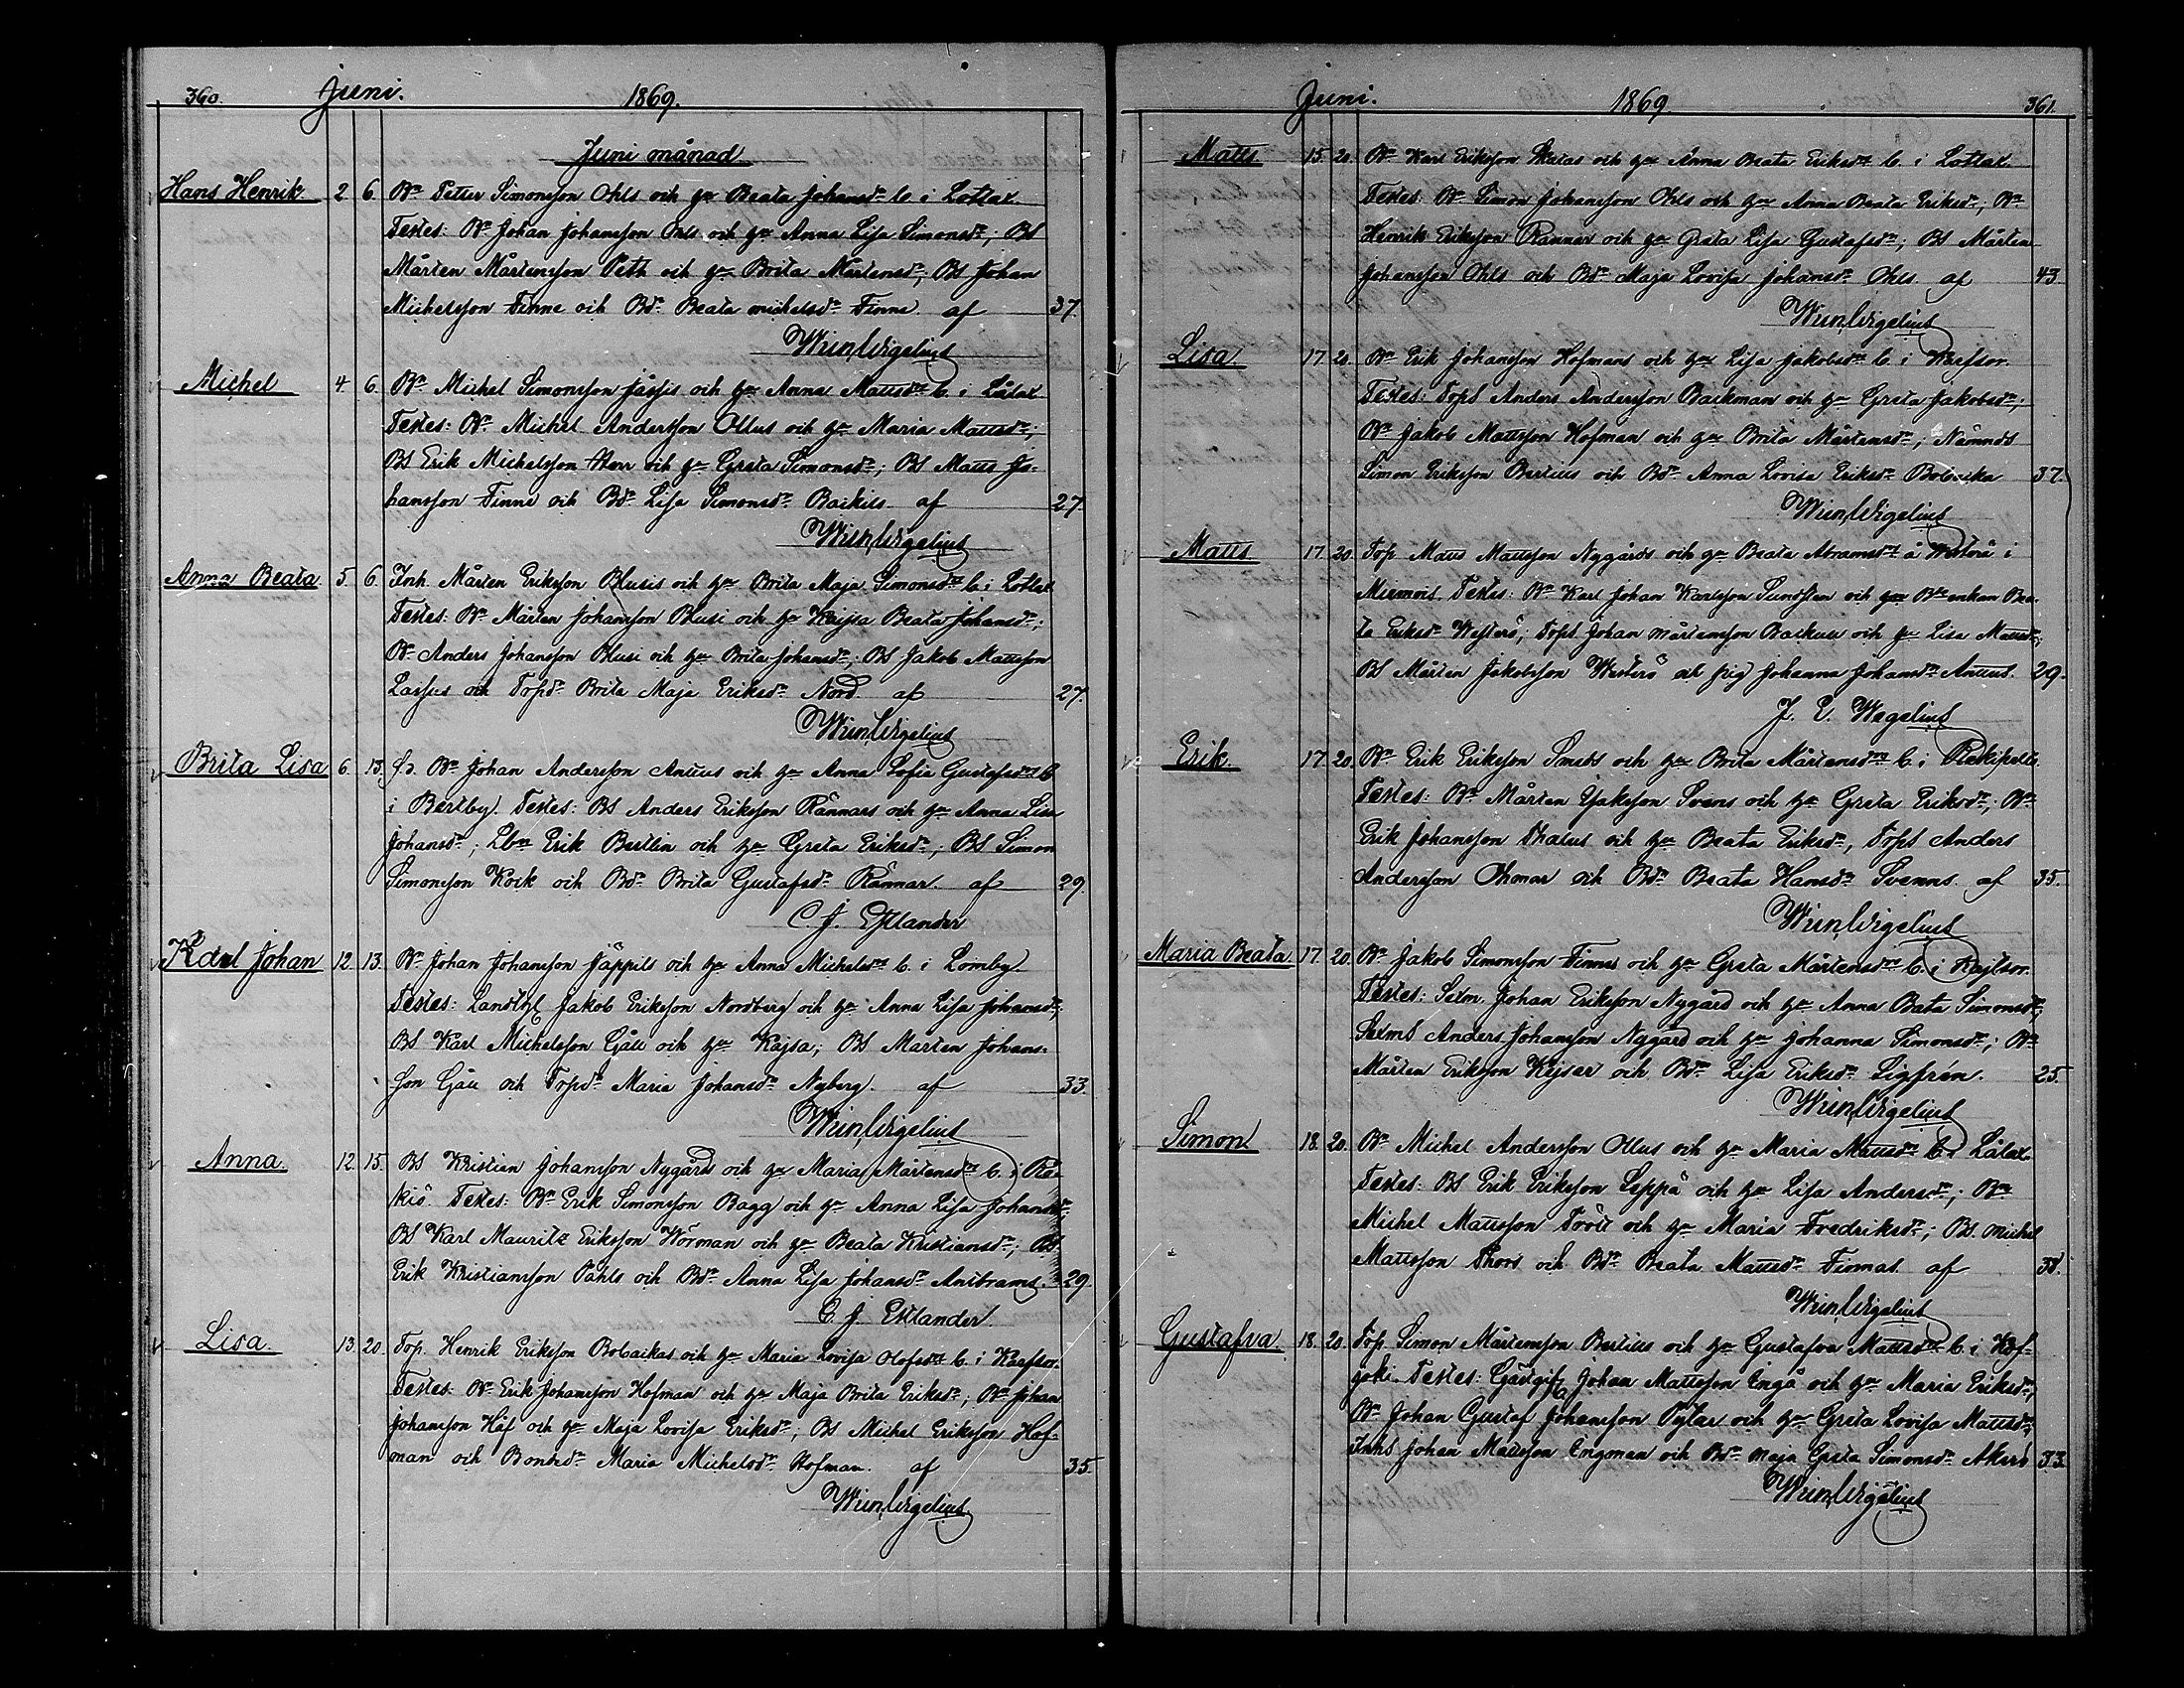 360. Juni. 1869.
Juni månad
Hans Henrik. 2 6. Bn Petter Simonsson Ohls och hu Beata Johansdr b. i Lottax
Testes: Bn Johan Johansson Ohls och hu Anna Lisa Simonsdr; BS
Mårten Mårtensson Peth och hu Brita Mårtensdr; BS Johan
Michelsson Finne och Bdr Beata michelsdr Finne. af 37.
Wilh Wegelius
Michel 4. 6. Bn Michel Simonsson och hu Anna Mattsdr b. i Lålax
Testes: Bn Michel Andersson Ollus och hu Maria Mattsdr;
BS Erik Michelsson Herr och hu Greta Simonsdr; BS Matts Jo-
hansson Finne och Bdr Lisa Simonsdr Backils. af 27.
Wilh Wegelius
Anna Beata 5. 6. Inh. Mårten Eriksson Blusis och hu Brita Maja Simonsdr b. i Lottax
Testes: Bn Mårten Johansson Blusi och hu Kajsa Beata Johansdr;
Bn Anders Johansson Blusi och hu Brita Johansdr; BS Jakob Mattsson
Lassus och Torpdr Brita Maja Eriksdr Nord. af 27.
Wilh Wegelius
Brita Lisa 6. 13. Bn Johan Andersson Anttus och hu Anna Sofia Gustafsdr b
i Bertby. Testes: BS Anders Eriksson Rännars och hu Anna Lisa
Johansdr; Lbn Erik Bertlin och hu Greta Eriksdr; BS Simon
Simonsson Kock och Bdr Brita Gustafsdr Rännar. af 29.
C. J. Estlander
Karl Johan 12. 13. Bn Johan Johansson Jäppils och hu Anna Michelsdr b. i Lomby.
Testes: Jakob Eriksson Nordberg och hu Anna Lisa Johansdr;
BS Karl Michelsson Gåll och hu Kajsa; BS Marten Johans-
son Gåll och Torpdr Maria Johansdr Nyberg. af 33.
Wilh Wegelius
Anna. 12. 15. BS Kristian Johansson Nygård och hu Maria Mårtensdr b. i Rö-
kiö. Testes: Bn Erik Simonsson Bagg och hu Anna Lisa Johansdr;
BS Karl Mauritz Eriksson Wörman och hu Beata Kristiansdr; BS
Erik Kristiansson Påhls och Bdr Anna Lisa Johansdr Antbrams. 29.
C. J. Estlander.
Lisa. 13. 20. Torp. Henrik Eriksson Bobackas och hu Maria Lovisa Olofsdr b. i Karfsor.
Testes: Bn Erik Johansson Hofman och hu Maja Brita Eriksdr; Bn Johan
Johansson Håf och hu Maja Lovisa Eriksdr; BS Michel Eriksson Hof-
man och Bondsdr Maria Michelsdr Hofman. af 35.
Wilh Wegelius
Juni. 1869. 361.
Matts 15. 20. Bn Karl Eriksson Skatas och hu Anna Beata Eriksdr b. i Lottax.
Testes: Bn Simon Johansson Ohls och hu Anna Beata Eriksdr; Bn
Henrik Eriksson Rannar och hu Greta Lisa Gustafsdr; BS Mårten
Johansson Ohls och Bdr Maja Lovisa Johansdr Ohls af 43.
Wilh Wegelius
Lisa. 17. 20. Bn Erik Johansson Hofmans och hu Lisa Jakobsdr b. i Karfsor.
Testes: TorpS Anders Andersson Backman och hu Greta Jakobsdr;
Bn Jakob Mattsson Hofman och hu Brita Mårtensdr; Nämnds
Simon Eriksson Bertils och Bdr Anna Lovisa Eriksdr Bobacka 37.
Wilh Wegelius
Matts 17. 20. Torp. Matts Mattsson Nygårds och hu Beata Abramsdr å Westerö i
Miemois. Testes: Bn Karl Johan Karlsson Sundsten och Bdeenkan Bea-
ta Eriksdr Westerö; TorpS Johan Mårtensson Backull och hu Lisa Mattsdr;
BS Mårten Jakobsson Westerö och pig Johanna Johansdr Anttus. 29.
J. E. Wegelius
Erik. 17. 20. Bn Erik Eriksson Smeds och hu Brita Mårtensdr b. i Rekipelto.
Testes: Bn Mårten Isaksson Svens och hu Greta Eriksdr; Bn
Erik Johansson och hu Beata Eriksdr, TorpS Anders
Andersson och Bdr Beata Hansdr Svenns. af 35.
Wilh Wegelius
Maria Beata 17. 20. Bn Jakob Simonsson Finnes och hu Greta Mårtensdr b. i Kajtsor.
Testes: Sexm. Johan Eriksson Nygård och hu Anna Bata Simonsdr;
SexmS Anders Johansson Nygård och hu Johanna Simonsdr; Bn
Mårten Eriksson Kejsar och Bdr Lisa Eriksdr Sigfrén. 25.
Wilh Wegelius
Simon 18. 20. Bn Michel Andersson Ollus och hu Maria Mattsdr b. i Lålax.
Testes: BS Erik Eriksson Seppä och hu Lisa Andersdr; Bn
Michel Mattsson och hu Maria Fredriksdr; BS. Michel
Mattsson Thors och Bdr Beata Mattsdr Tiomas. af 38.
Wilh Wegelius
Gustafva 18. 20. Torp. Simon Mårtensson Bertills och hu Gustafva Mattsdr b. i Kof-
joki. Testes: Gästgif Johan Mattsson Engå och hu Maria Eriksdr;
Bn Johan Gustaf Johansson och hu Greta Lovisa Mattsdr;
InhS Johan Mattsson Engman och Bdr Maja Greta Simonsdr Akers 33.
Wilh Wegelius